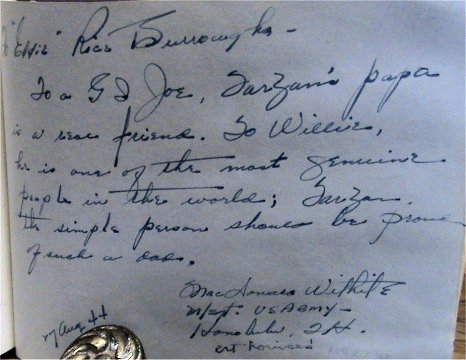 To "Eddie" Rice Burroughs —
To a GI Joe, Tarzan's papa
is a real friend. To Willie,
he is one of the most genuine
people in the world; Tarzan,
the simple person should be proud
of such a dad.
Withite
M/Sgt. US ARMY —
Honolulu, T.H.
27 Aug 44